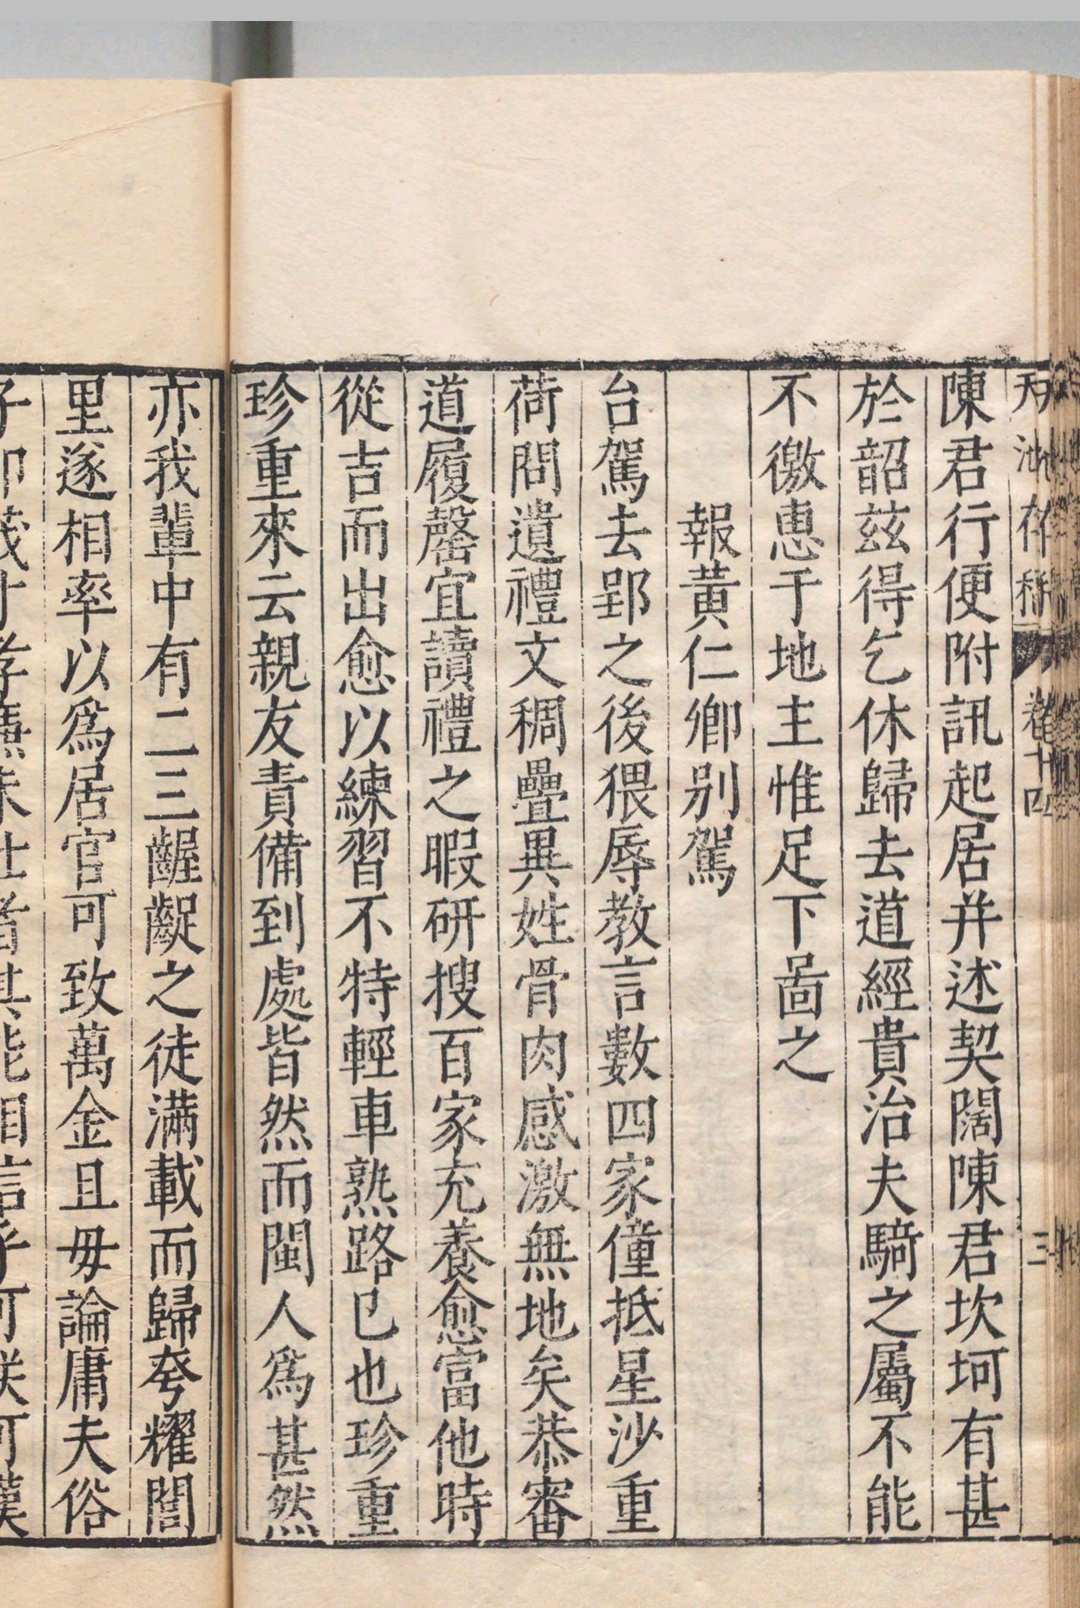 天池存稿 卷十四 三
陳君行便附訊起居并述契闊陳君坎坷有甚
於韶茲得乞休歸去道經貴治夫騎之屬不能
不徼惠于地主惟足下啚之
報黃仁鄉別駕
台駕去郢之後猥辱教言數四家僮抵星沙重
荷問遺禮文稠疊異姓骨肉感激無地矣恭審
道履罄宜讀禮之暇研搜百家充養愈富他時
從吉而出愈以練習不特輕車熟路已也珍重
珍重來云親友責備到處皆然而閩人爲甚然
亦我輩中有二三齷齪之徒滿載而歸夸耀閭
里遂相率以爲居官可致萬金且毋論庸夫俗